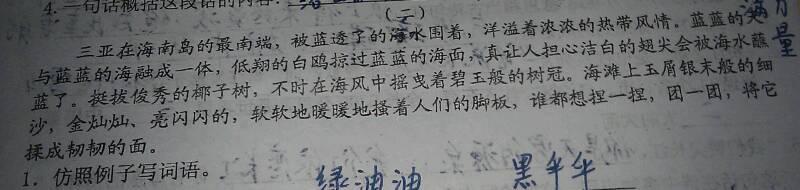 4. 一句话概括这段话的内容。
(二)
三亚在海南岛的最南端，被蓝透了的海水围着，洋溢着浓浓的热带风情。蓝蓝的天
与蓝蓝的海融成一体，低翔的白鸥掠过蓝蓝的海面，真让人担心洁白的翅尖会被海水蘸
蓝了。挺拔俊秀的椰子树，不时在海风中摇曳着碧玉般的树冠。海滩上玉屑银末般的细
沙，金灿灿、亮闪闪的，软软地暖暖地搔着人们的脚板，谁都想捏一捏，团一团，将它
揉成韧韧的面。
1. 仿照例子写词语。
绿油油 黑乎乎